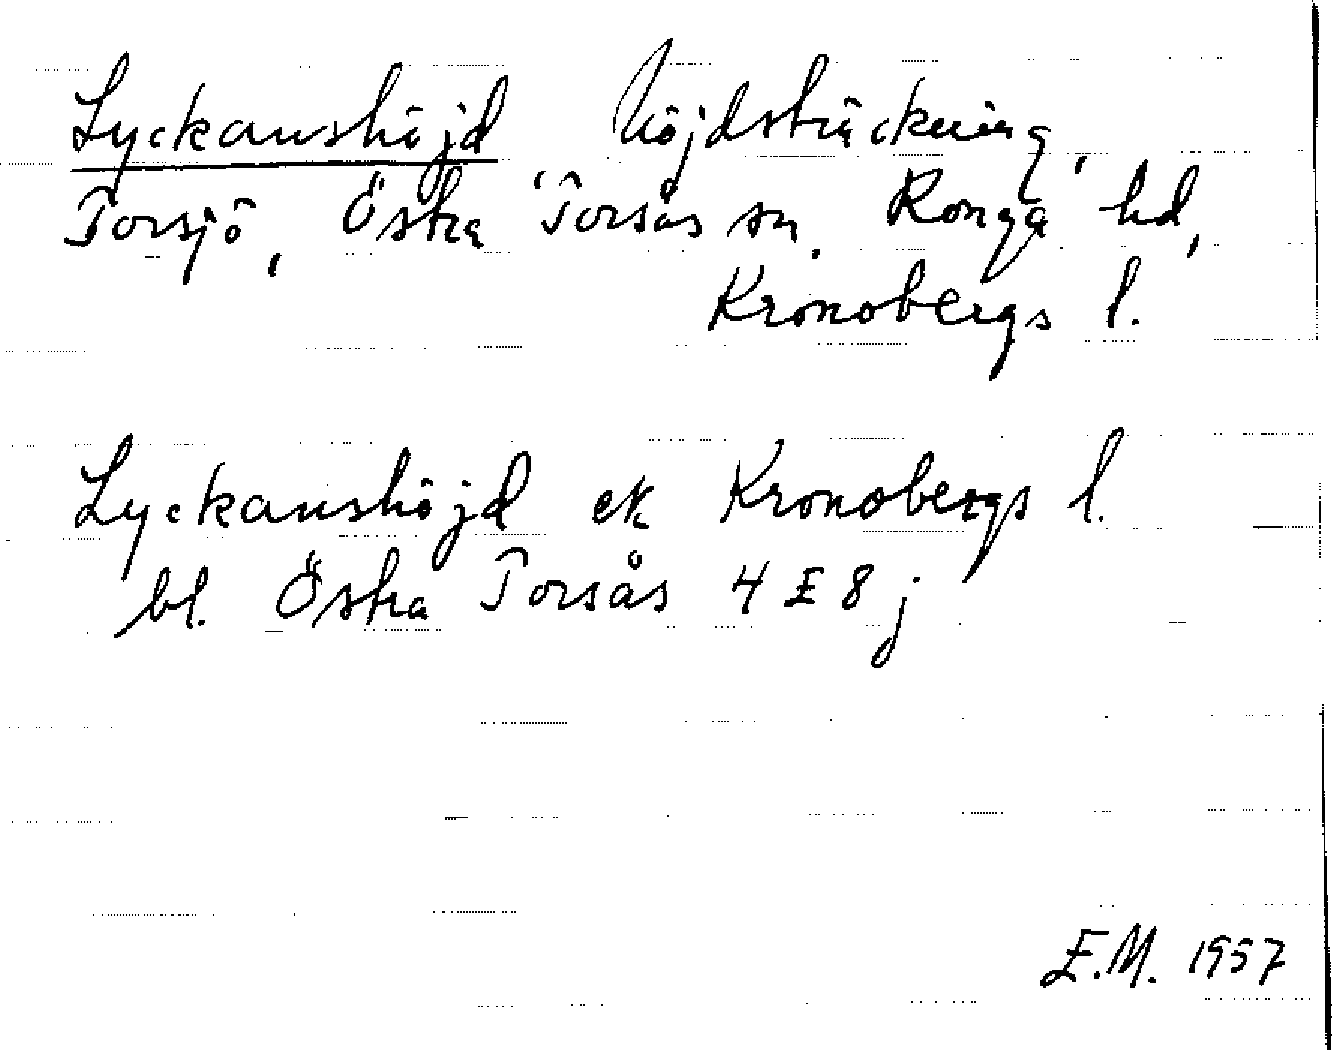 Lyckanshöjd höjdsträckning,
Torsjö, Östra Torsås sn. Konga hd,
Kronobergs l.
Lyckanshöjd ek Kronobergs l.
bl. Östra Torsås 4 E 8 j
E.M. 1957